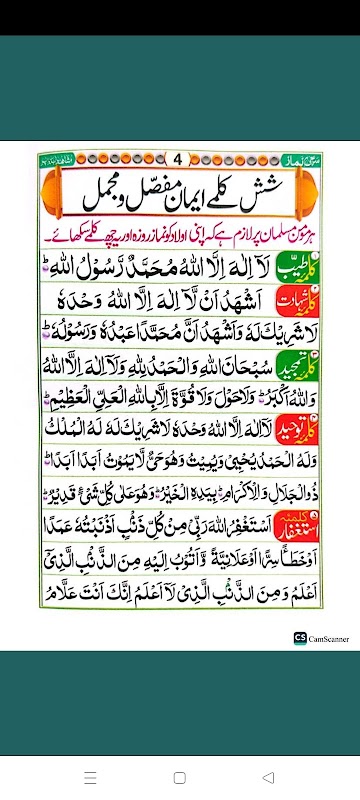 سُنّی نماز 4
شش کلمے ایمان مفصّل و مجمل
ہر مومن مسلمان پر لازم ہے کہ اپنی اولاد کو نماز روزہ اور یہ چھ کلمے سکھائے۔
۱ کلمۂ طیّب لَآ اِلٰهَ اِلَّا اللّٰهُ مُحَمَّدٌ رَّسُوْلُ اللّٰهِ ؕ
۲ کلمۂ شہادت اَشْهَدُ اَنْ لَّآ اِلٰهَ اِلَّا اللّٰهُ وَحْدَهٗ
لَا شَرِيْكَ لَهٗ وَاَشْهَدُ اَنَّ مُحَمَّدًا عَبْدُهٗ وَرَسُوْلُهٗ ؕ
۳ کلمۂ تمجید سُبْحَانَ اللّٰهِ وَالْحَمْدُ لِلّٰهِ وَلَآ اِلٰهَ اِلَّا اللّٰهُ
وَاللّٰهُ اَكْبَرُ ؕ وَلَا حَوْلَ وَلَا قُوَّةَ اِلَّا بِاللّٰهِ الْعَلِيِّ الْعَظِيْمِ ؕ
۴ کلمۂ توحید لَآ اِلٰهَ اِلَّا اللّٰهُ وَحْدَهٗ لَا شَرِيْكَ لَهٗ لَهُ الْمُلْكُ
وَلَهُ الْحَمْدُ يُحْيِيْ وَيُمِيْتُ وَهُوَ حَيٌّ لَّا يَمُوْتُ اَبَدًا اَبَدًا ؕ
ذُو الْجَلَالِ وَالْاِكْرَامِ ؕ بِيَدِهِ الْخَيْرُ ؕ وَهُوَ عَلٰى كُلِّ شَيْءٍ قَدِيْرٌ ؕ
۵ کلمۂ استغفار اَسْتَغْفِرُ اللّٰهَ رَبِّيْ مِنْ كُلِّ ذَنْۢبٍ اَذْنَبْتُهٗ عَمَدًا
اَوْ خَطَأً سِرًّا اَوْ عَلَانِيَةً وَّاَتُوْبُ اِلَيْهِ مِنَ الذَّنْۢبِ الَّذِيْٓ
اَعْلَمُ وَمِنَ الذَّنْۢبِ الَّذِيْ لَآ اَعْلَمُ اِنَّكَ اَنْتَ عَلَّامُ
CS CamScanner